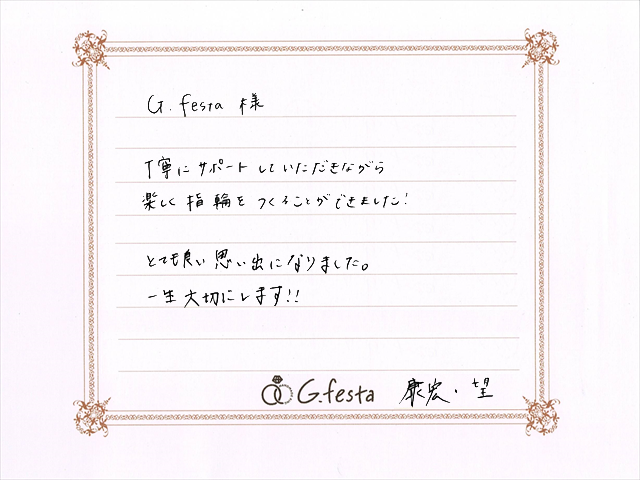 G.festa 様
丁寧にサポートしていただきながら
楽しく指輪をつくることができました!
とても良い思い出になりました。
一生大切にします!!
G.festa 康宏・望